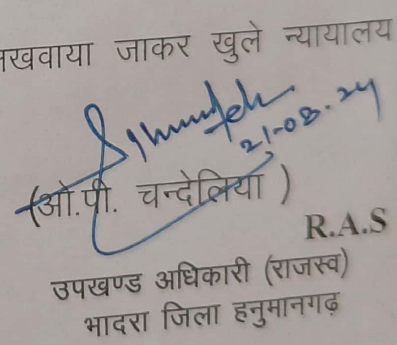 खवाया जाकर खुले न्यायालय
21-08-24
(ओ.पी. चन्देलिया )
R.A.S
उपखण्ड अधिकारी (राजस्व)
भादरा जिला हनुमानगढ़